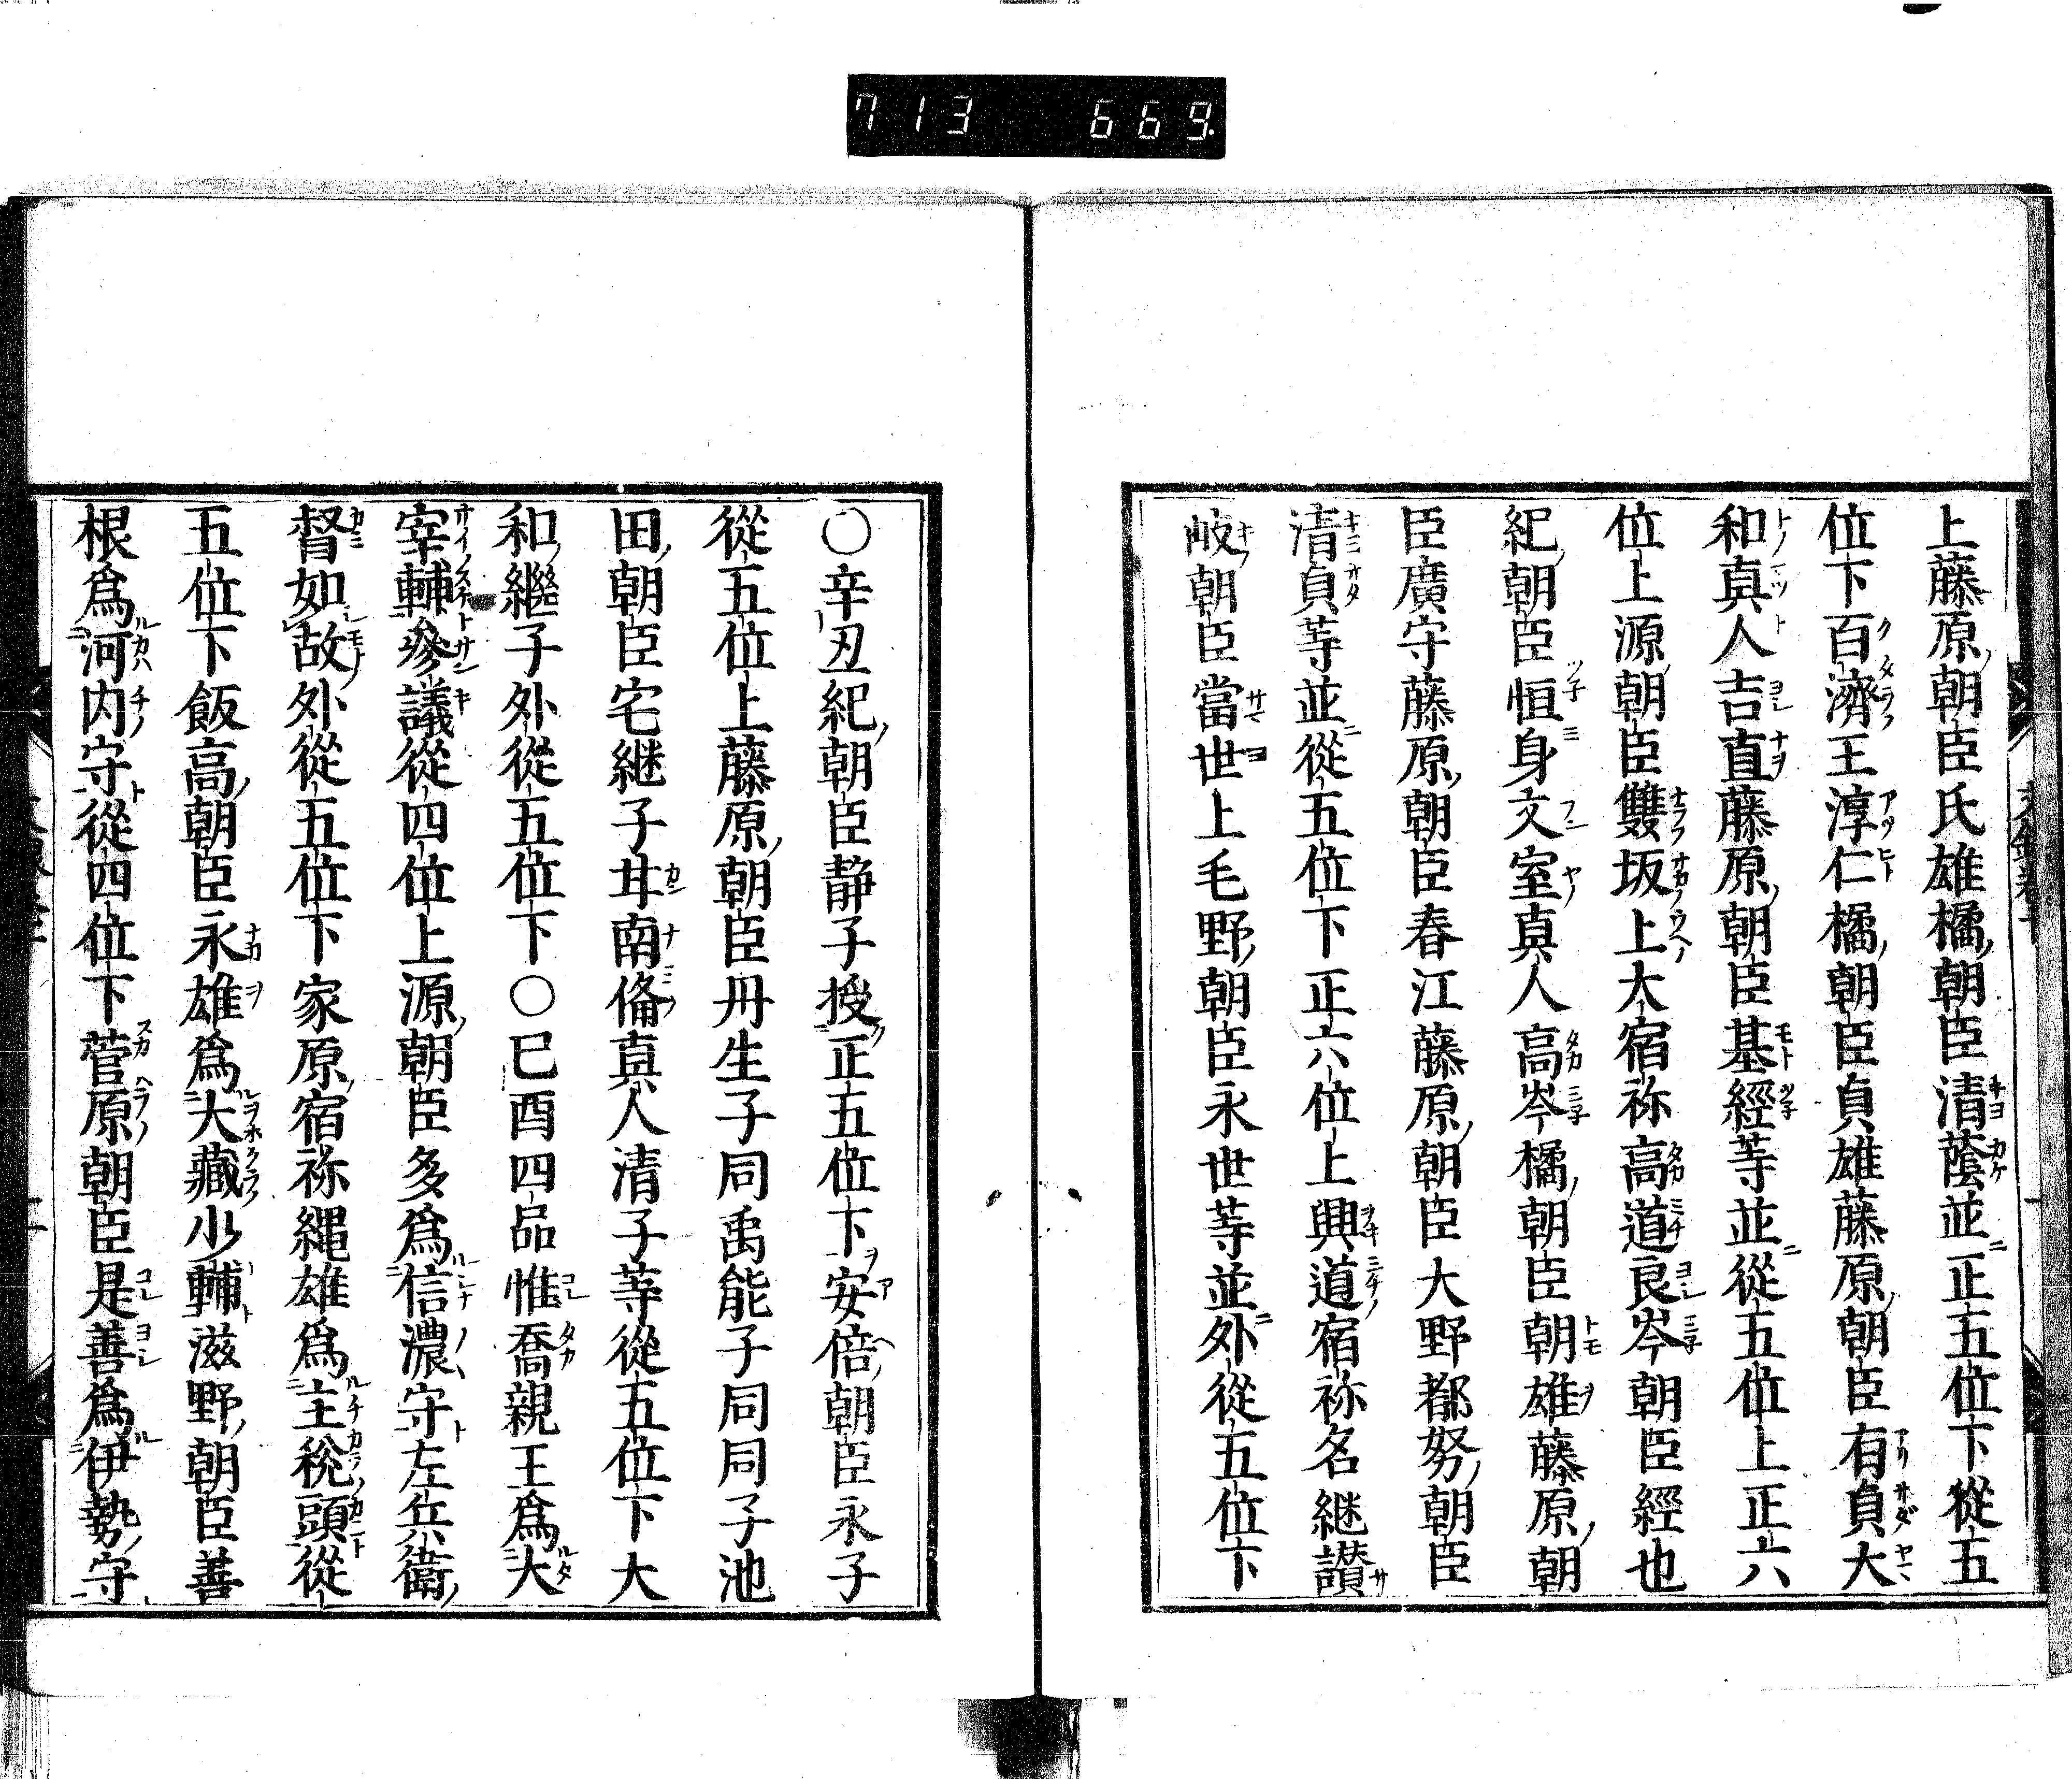 713 669.
上藤原朝臣氏雄橘朝臣清蔭並正五位下從五
位下百濟王淳仁橘朝臣貞雄藤原朝臣有貞大
和真人吉直藤原朝臣基經等並從五位上正六
位上源朝臣雙坂上大宿祢高道良岑朝臣經也
紀朝臣恒身文室真人高岑橘朝臣朝雄藤原朝
臣廣守藤原朝臣春江藤原朝臣大野都努朝臣
清貞等並從五位下正六位上興道宿祢名継讃
岐朝臣當世上毛野朝臣永世等並外從五位下
〇辛丑紀朝臣静子授正五位下安倍朝臣永子
從五位上藤原朝臣丹生子同禹能子同同子池
田朝臣宅継子甘南俻真人清子等從五位下大
和繼子外從五位下〇巳酉四品惟喬親王為大
宰輔參議從四位上源朝臣多為信濃守左兵衛
督如故外從五位下家原宿祢繩雄為主稅頭從
五位下飯高朝臣永雄為大藏少輔滋野朝臣善
根為河内守從四位下菅原朝臣是善為伊勢守